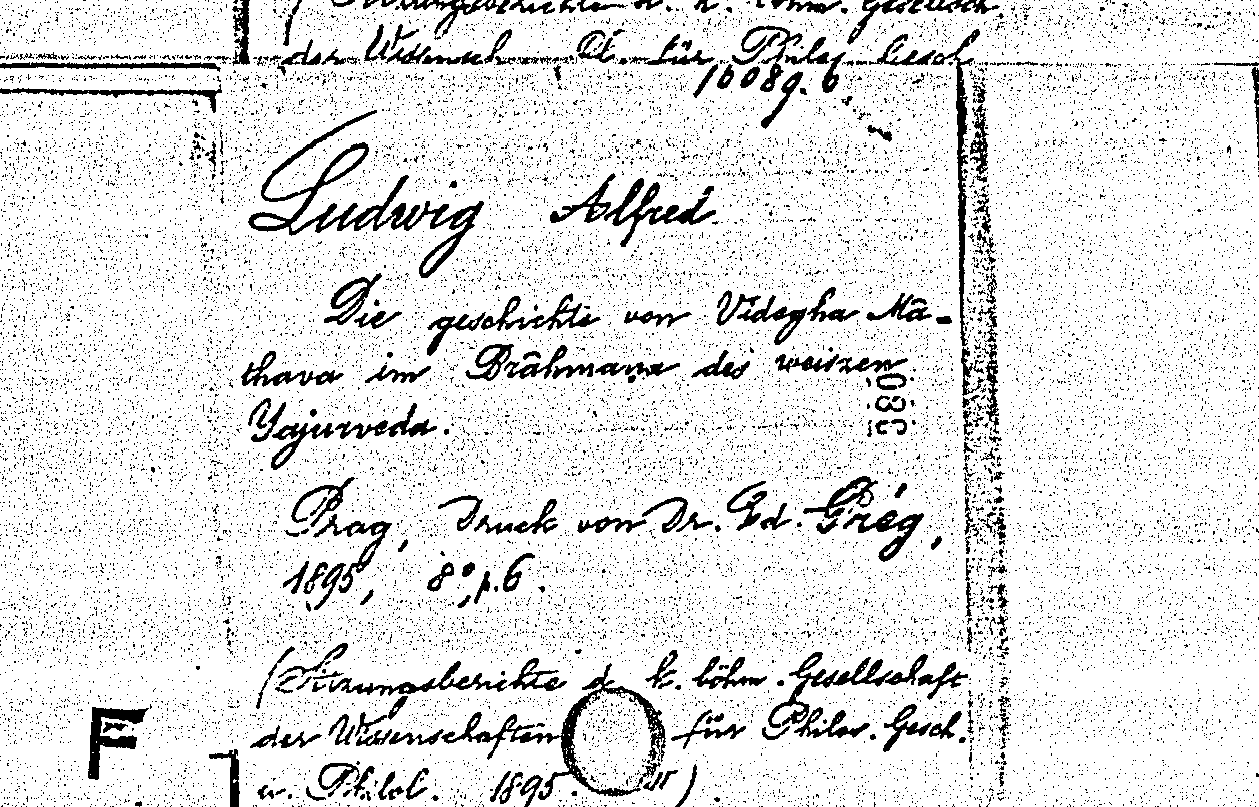 (Sitzungsberichte d. k. böhm. Gesellsch.
der Wissensch Cl. für Philos. Gesch
16089. 6.
Ludwig Alfred
Die geschichte von Videgha Mâ-
thava im Brâhmaṇa des weiszen
Yajurveda.
380
Prag, Druck von Dr. Ed. Grég,
1895, 8°, p. 6.
(Sitzungsberichte d. k. böhm. Gesellschaft
der Wissenschaften für Philos. Gesch.
u. Philol. 1895. )
F